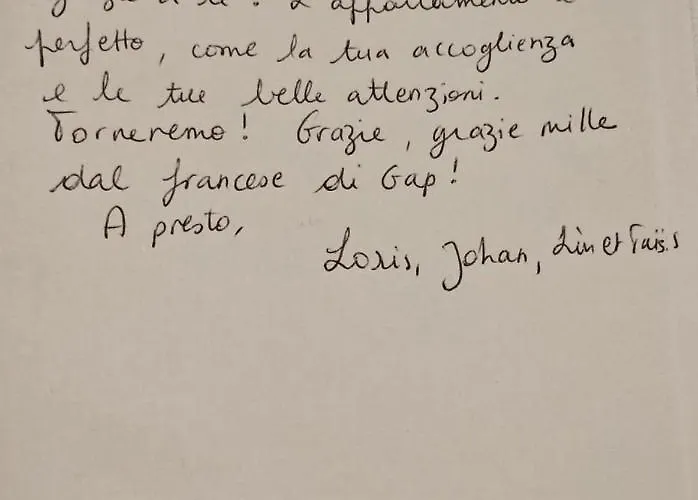 L'appartamento è
perfetto, come la tua accoglienza
e le tue belle attenzioni.
Torneremo! Grazie, grazie mille
dal francese di Gap!
A presto,
Loris, Johan, Lin et Taïs.s